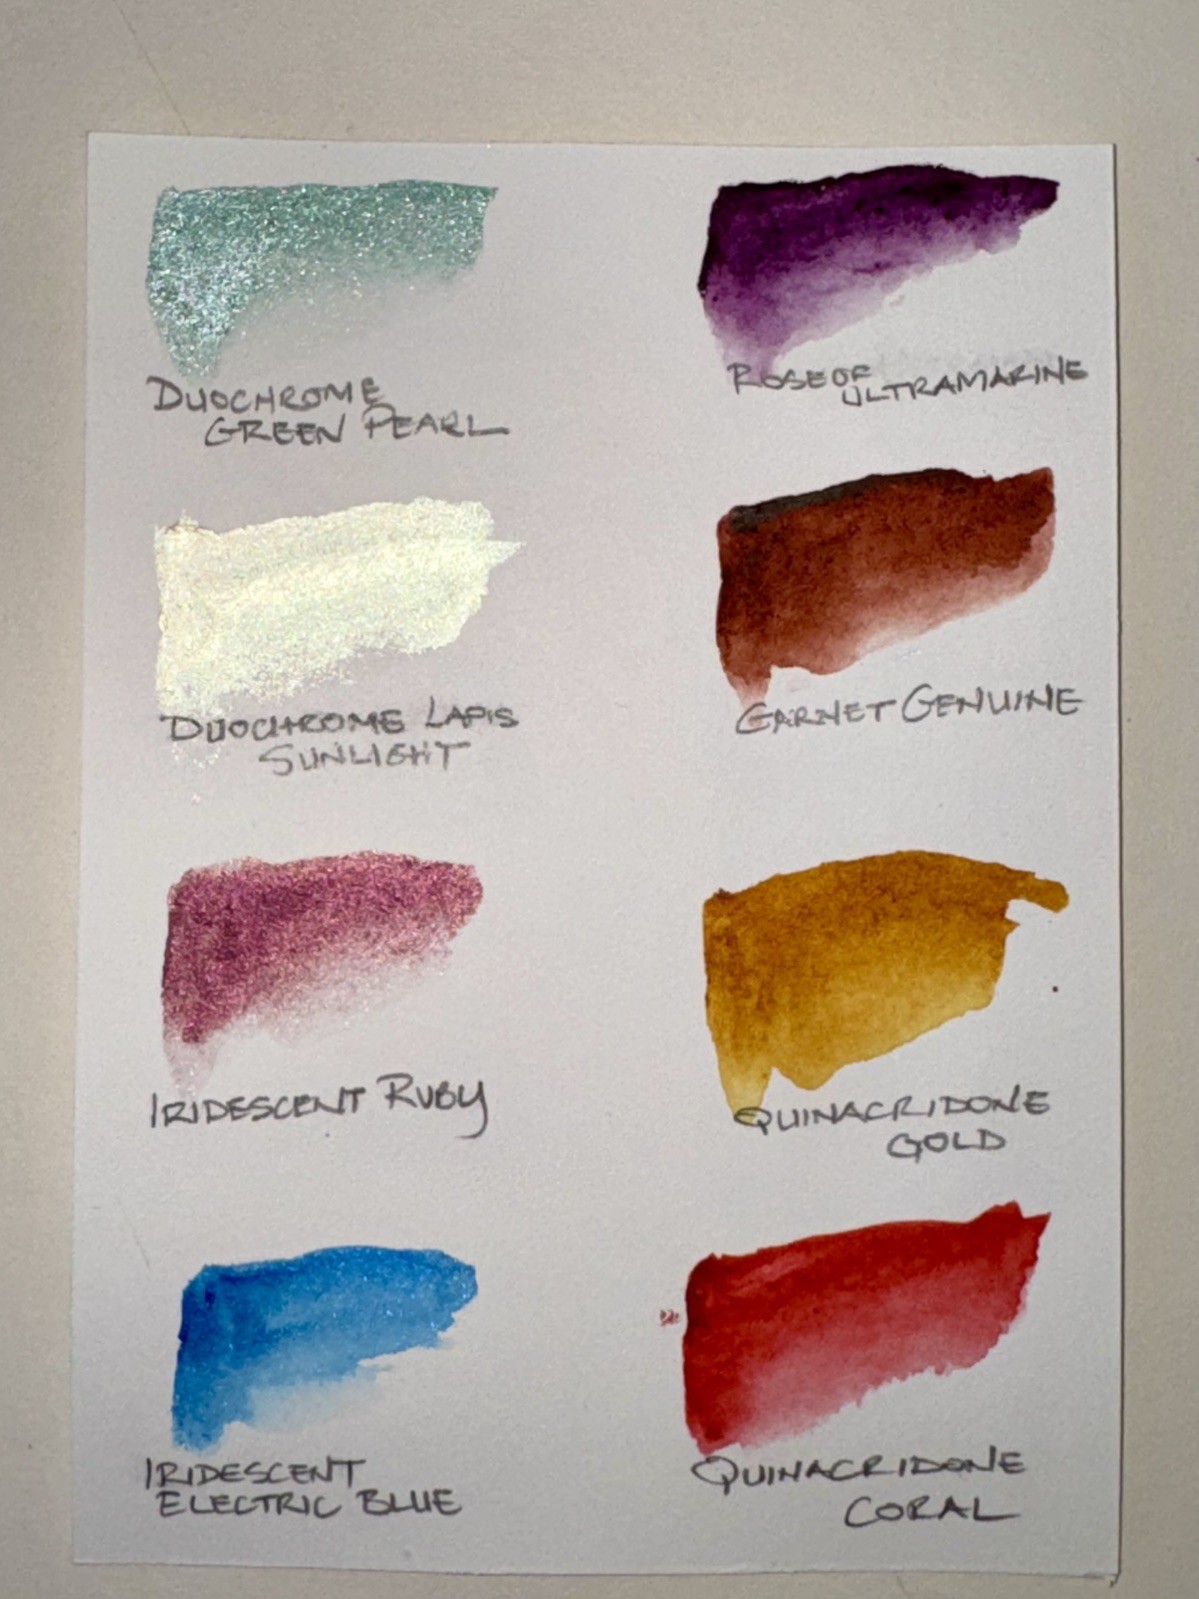 DUOCHROME
GREEN PEARL
ROSE OF
ULTRAMARINE
DUOCHROME LAPIS
SUNLIGHT
GARNET GENUINE
IRIDESCENT RUBY
QUINACRIDONE
GOLD
IRIDESCENT
ELECTRIC BLUE
QUINACRIDONE
CORAL